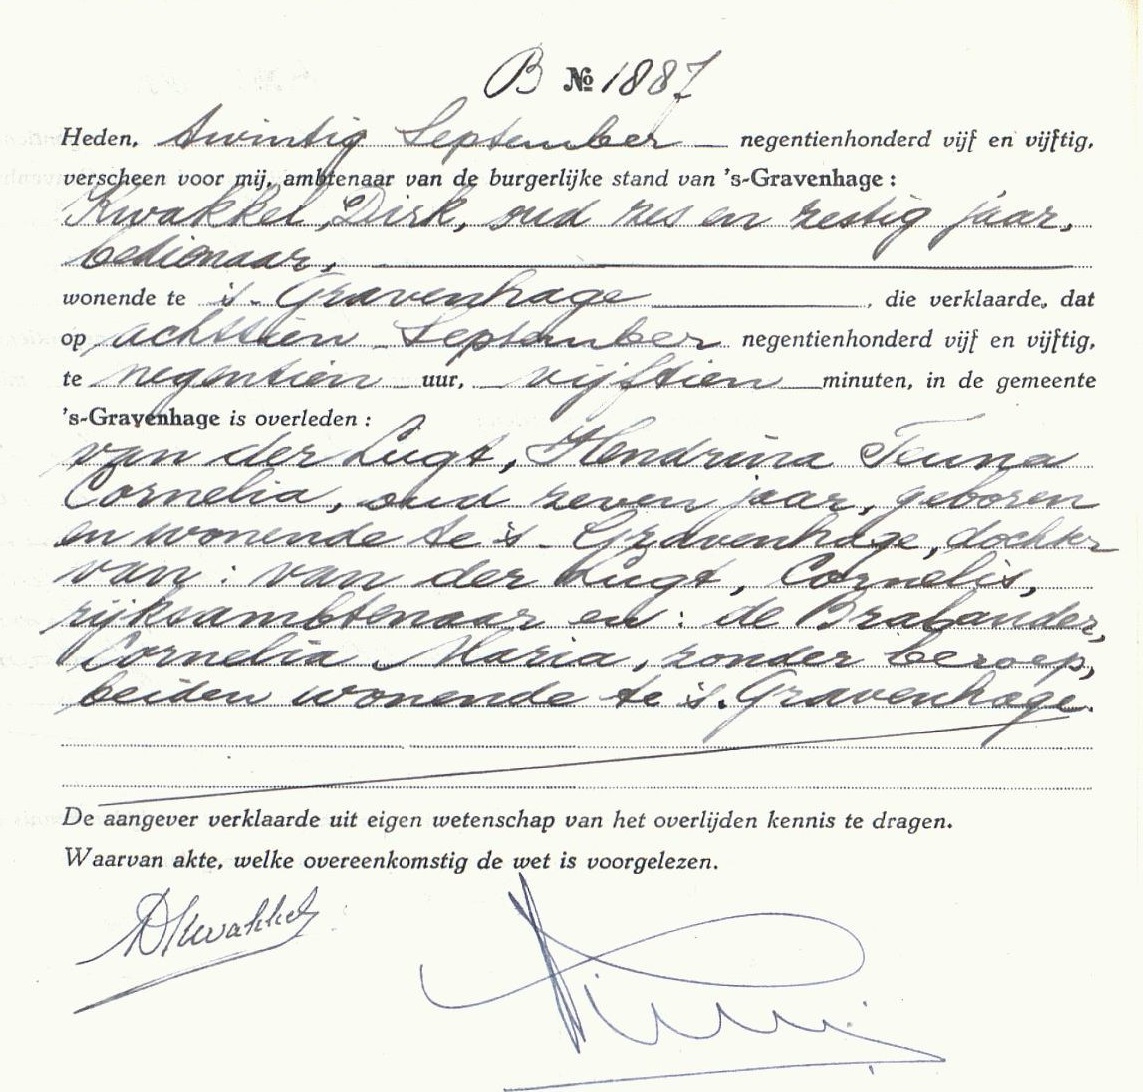 B № 1887
Heden, twintig September negentienhonderd vijf en vijftig,
verscheen voor mij, ambtenaar van de burgerlijke stand van 's-Gravenhage :
Kwakkel, Dirk, oud zes en zestig jaar,
bedienaar,
wonende te 's-Gravenhage, die verklaarde, dat
op achttien September negentienhonderd vijf en vijftig,
te negentien uur, vijftien minuten, in de gemeente
's-Gravenhage is overleden :
van der Lugt, Hendrina Teuna
Cornelia, oud zeven jaar, geboren
en wonende te 's-Gravenhage, dochter
van : van der Lugt, Cornelis,
rijksambtenaar en : de Brabander,
Cornelia Maria, zonder beroep,
beiden wonende te 's-Gravenhage.
De aangever verklaarde uit eigen wetenschap van het overlijden kennis te dragen.
Waarvan akte, welke overeenkomstig de wet is voorgelezen.
DKwakkel